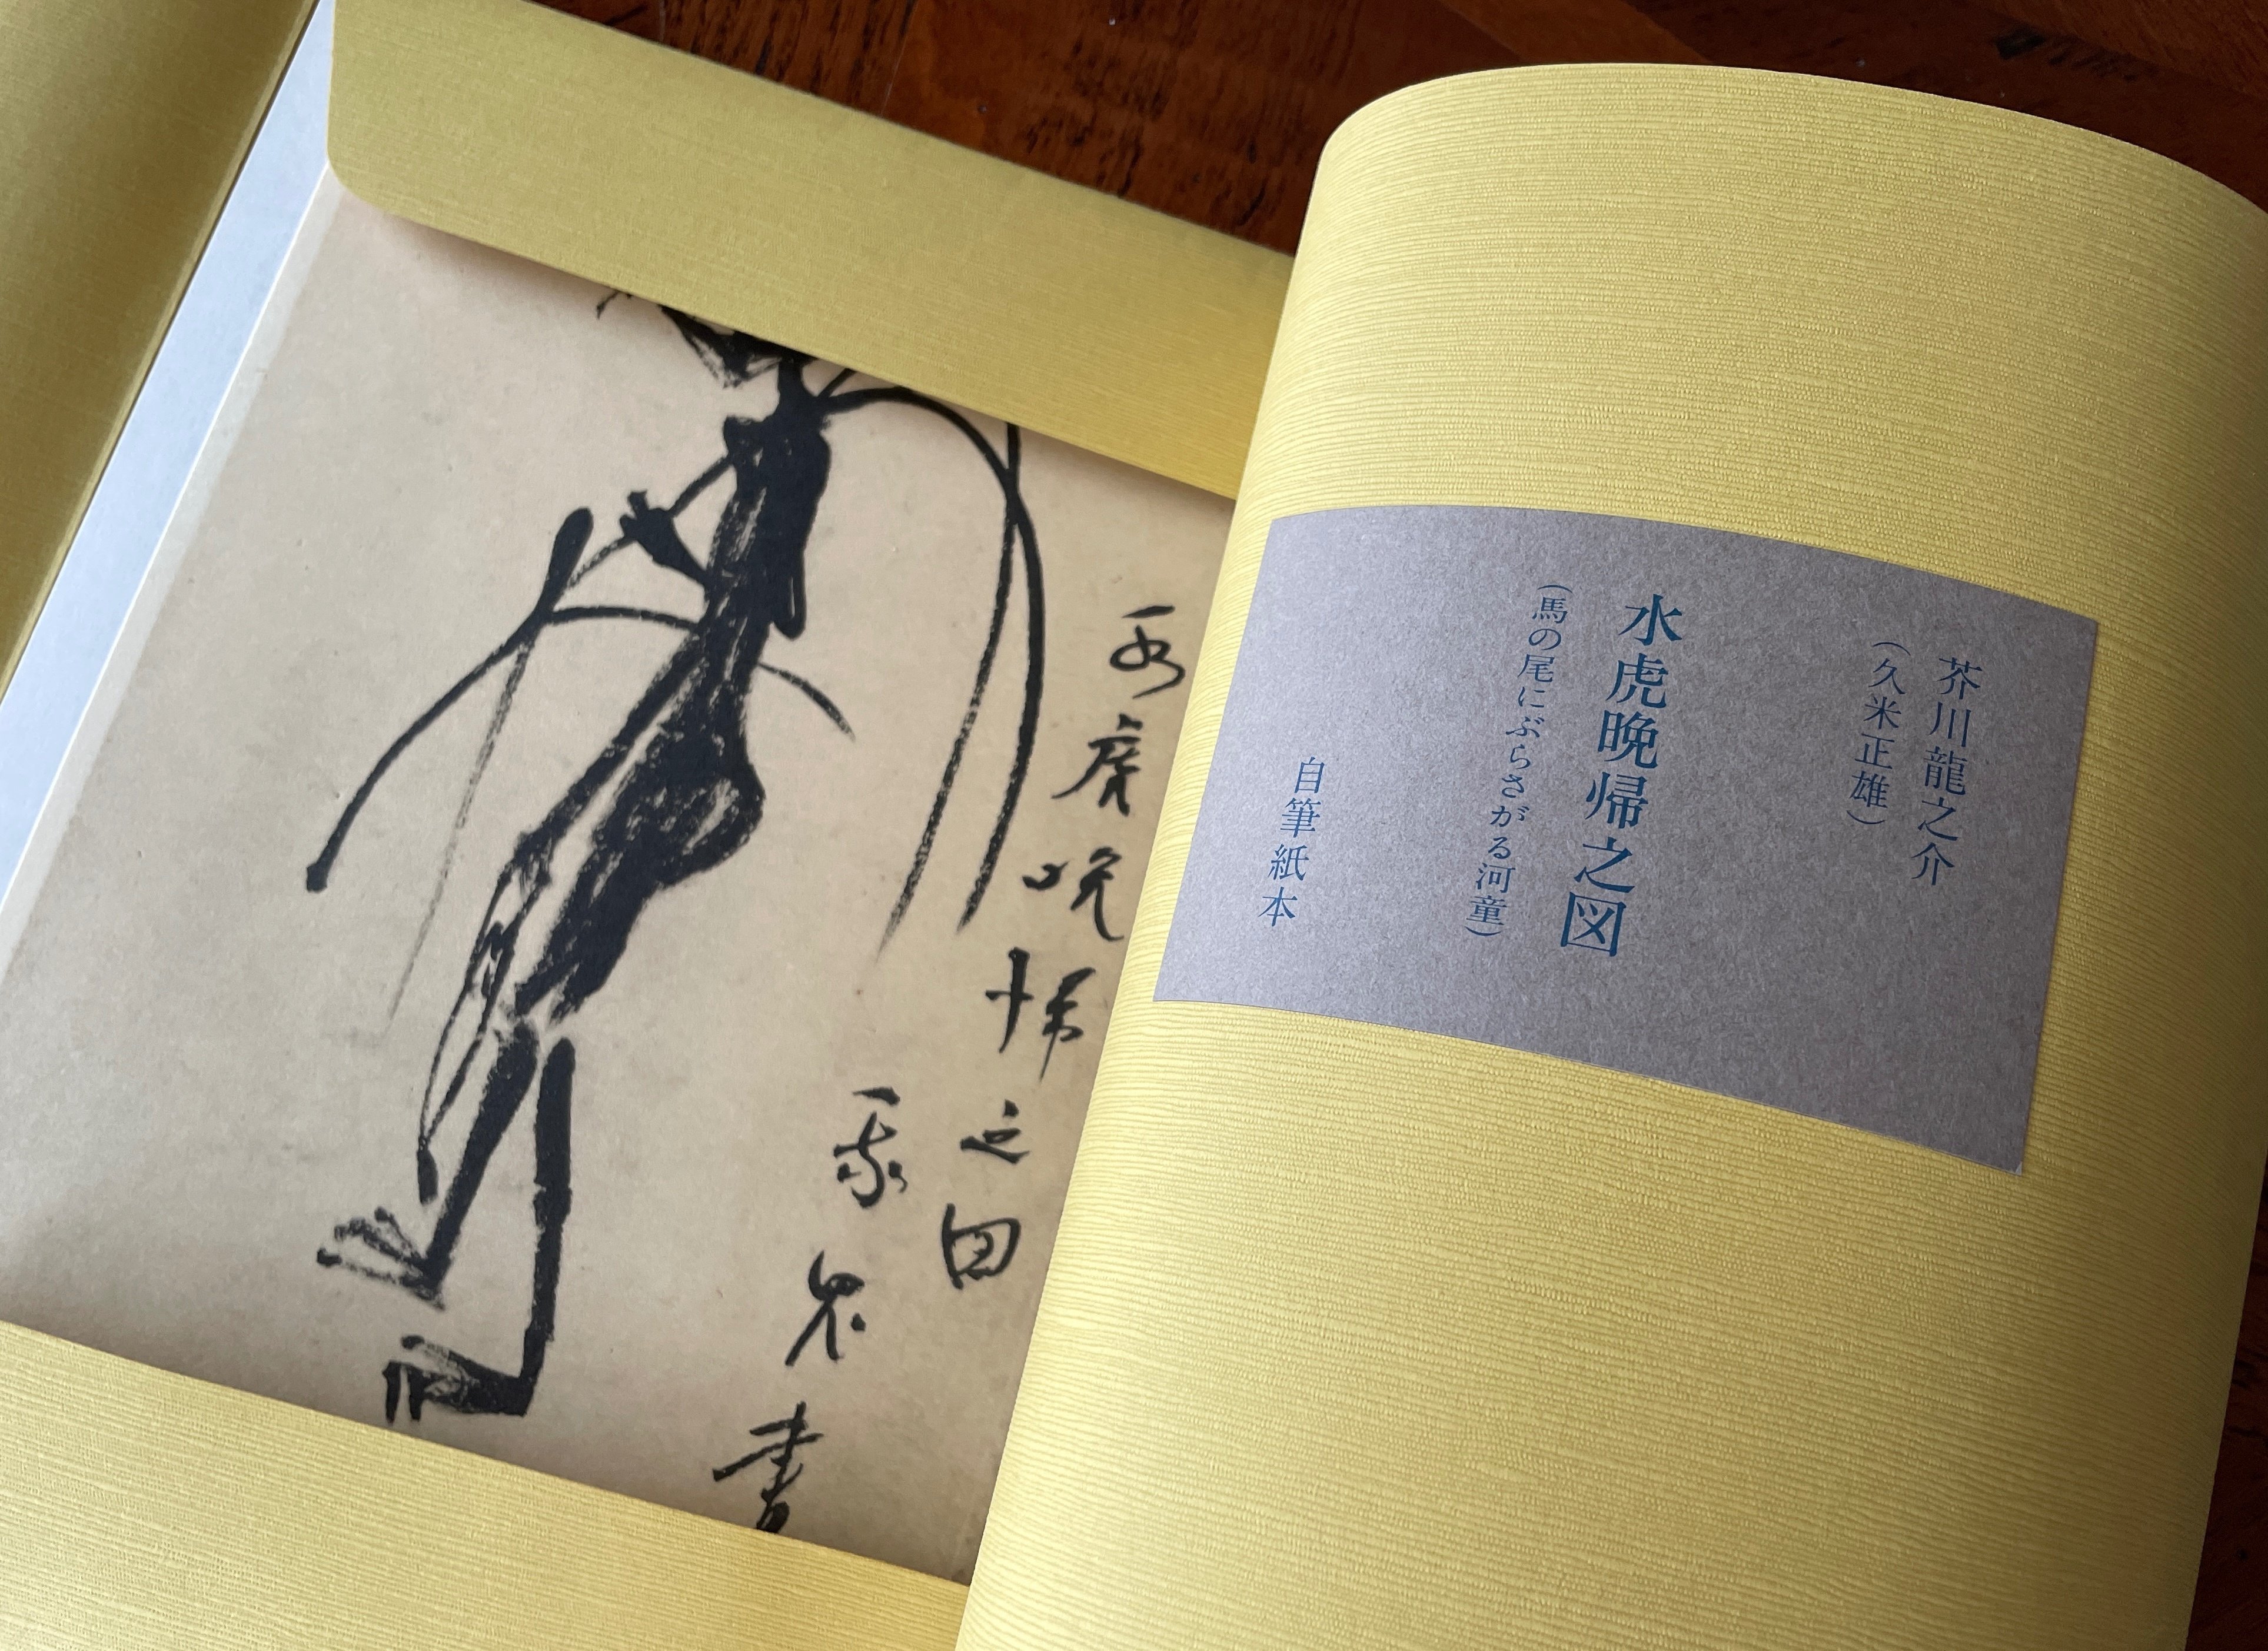 芥川龍之介
（久米正雄）
水虎晩帰之図
（馬の尾にぶらさがる河童）
自筆紙本
水虎晩帰之図
我鬼書